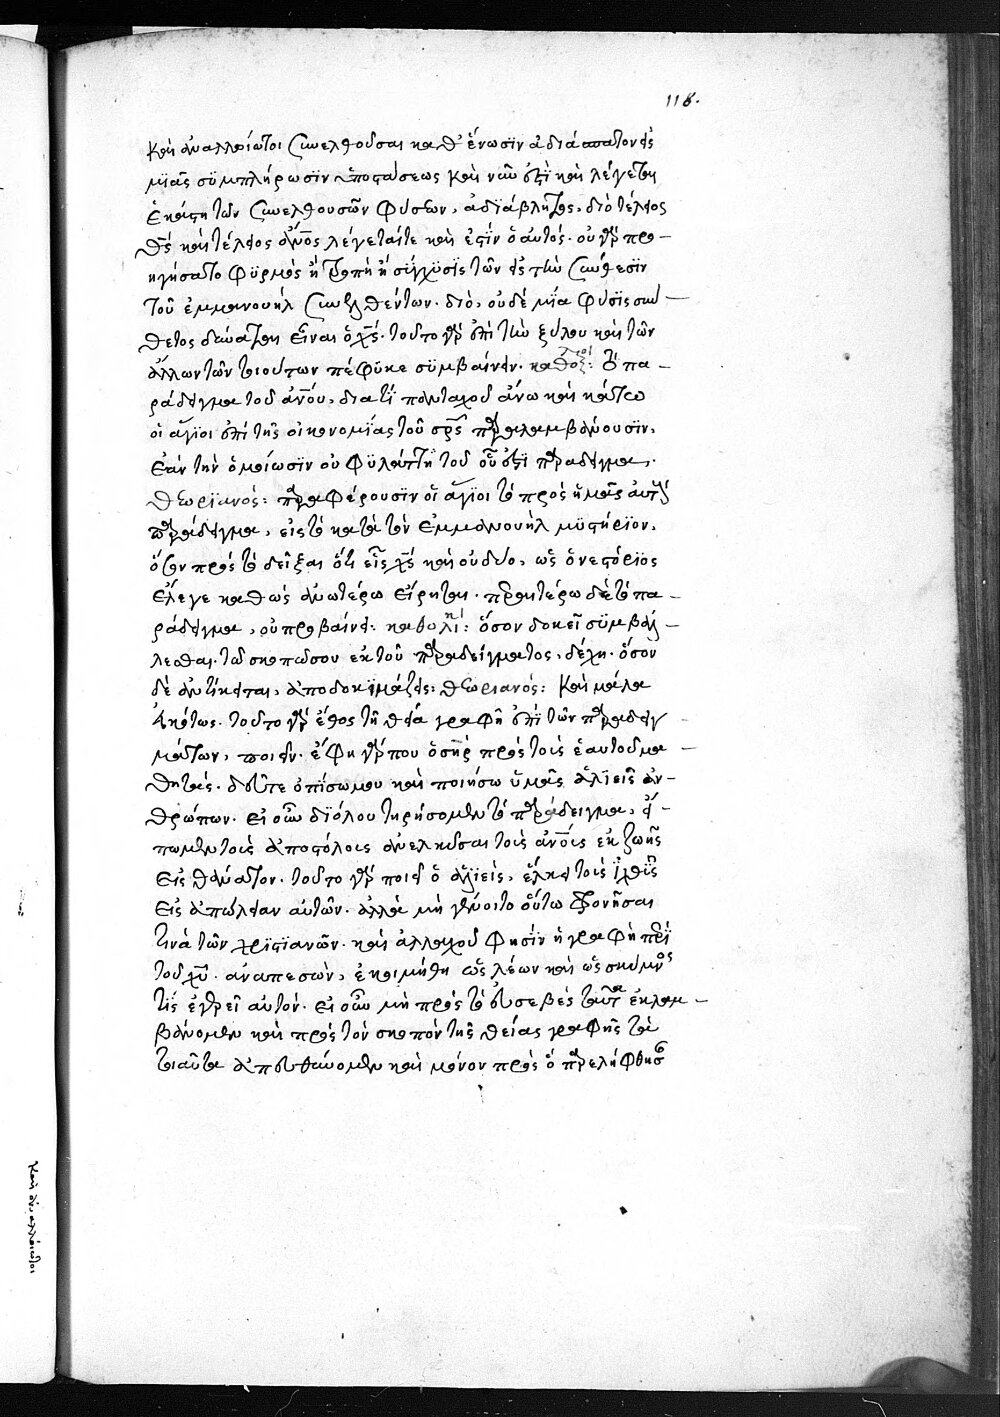 118.
καὶ ἀναλλοίωτοι συνελθοῦσαι καθ' ἕνωσιν ἀδιάσπατον εἰς
μιᾶς συμπλήρωσιν ὑποστάσεως καὶ νῦν ἐστὶ καὶ λέγεται
ἑκάστη τῶν συνελθουσῶν φύσεων, ἀδιάβλητος, διὸ τέλειος
θς καὶ τέλειος ἄνος λέγεταί τε καὶ ἐστὶν ὁ αὐτός. οὐ γὰρ προ-
ηγήσατο φυρμὸς ἢ τροπὴ ἢ σύγχυσις τῶν εἰς τὴν σύνθεσιν
τοῦ ἐμμανουὴλ συνελθόντων. διὸ, οὐδὲ μία φύσις συν-
θετος δύναται εἶναι ὁ χς. τοῦτο γὰρ ἐπὶ τοῦ ξύλου καὶ τῶν
ἄλλων τῶν τοιούτων πέφυκε συμβαίνειν. καθολ: τὸ πα-
ράδειγμα τοῦ ἀνου, διατί πολλαχοῦ ἄνω καὶ κάτω
οἱ ἅγιοι ἐπὶ τῆς οἰκονομίας τοῦ σρς παραλαμβάνουσιν.
ἐὰν τὴν ὁμοίωσιν οὐ φυλάττῃ τοῦ οὗ ἐστι παράδειγμα.
θεωριανός: παραφέρουσιν οἱ ἅγιοι τὸ πρὸς ἡμᾶς αὐτὸ
παράδειγμα, εἰς τὸ κατὰ τὸν ἐμμανουὴλ μυστήριον,
ὅταν πρὸς τὸ δεῖξαι ὅτι εἷς χς καὶ οὐ δύο, ὡς ὁ νεστόριος
ἔλεγε καθὼς ἀνωτέρω εἴρηται. περαιτέρω δὲ τὸ πα-
ράδειγμα, οὐ προβαίνει: καθολι: ὅσον δοκεῖ συμβάλ-
λεσθαι τῷ σκοπῷ σου ἐκ τοῦ παραδείγματος, δέχῃ. ὅσον
δὲ ἀντίκειται, ἀποδοκιμάζεις: θεωριανός: καὶ μάλα
εἰκότως. τοῦτο γὰρ ἔθος τῇ θείᾳ γραφῇ ἐπὶ τῶν παραδειγ-
μάτων, ποιεῖν. ἔφη γάρ που ὁ σηρ πρὸς τοὺς ἑαυτοῦ μα-
θητάς. δεῦτε ὀπίσω μου καὶ ποιήσω ὑμᾶς ἁλιεῖς ἀν-
θρώπων. εἰ οὖν διόλου τηρήσομεν τὸ παράδειγμα, εἴ-
πωμεν τοὺς ἀποστόλους ἀνελκῦσαι τοὺς ἀνους ἐκ ζωῆς
εἰς θάνατον. τοῦτο γὰρ ποιεῖ ὁ ἁλιεὺς, ἕλκει τοὺς ἰχθῦς
εἰς ἀπώλειαν αὐτῶν. ἀλλὰ μὴ γένοιτο οὕτω φρονῆσαι
τινὰ τῶν χριστιανῶν. καὶ ἀλλαχοῦ φησὶν ἡ γραφὴ περὶ
τοῦ χυ. ἀναπεσὼν, ἐκοιμήθη ὡς λέων καὶ ὡς σκύμνος
τίς ἐγερεῖ αὐτόν. εἰ οὖν μὴ πρὸς τὸ εὐσεβὲς ταῦτα ἐκλαμ-
βάνομεν καὶ πρὸς τὸν σκοπὸν τῆς θείας γραφῆς τὰ
τοιαῦτα ἀπευθύνομεν καὶ μόνον πρὸς ὃ παρελήφθησαν
καὶ ἀναλλοίωτοι